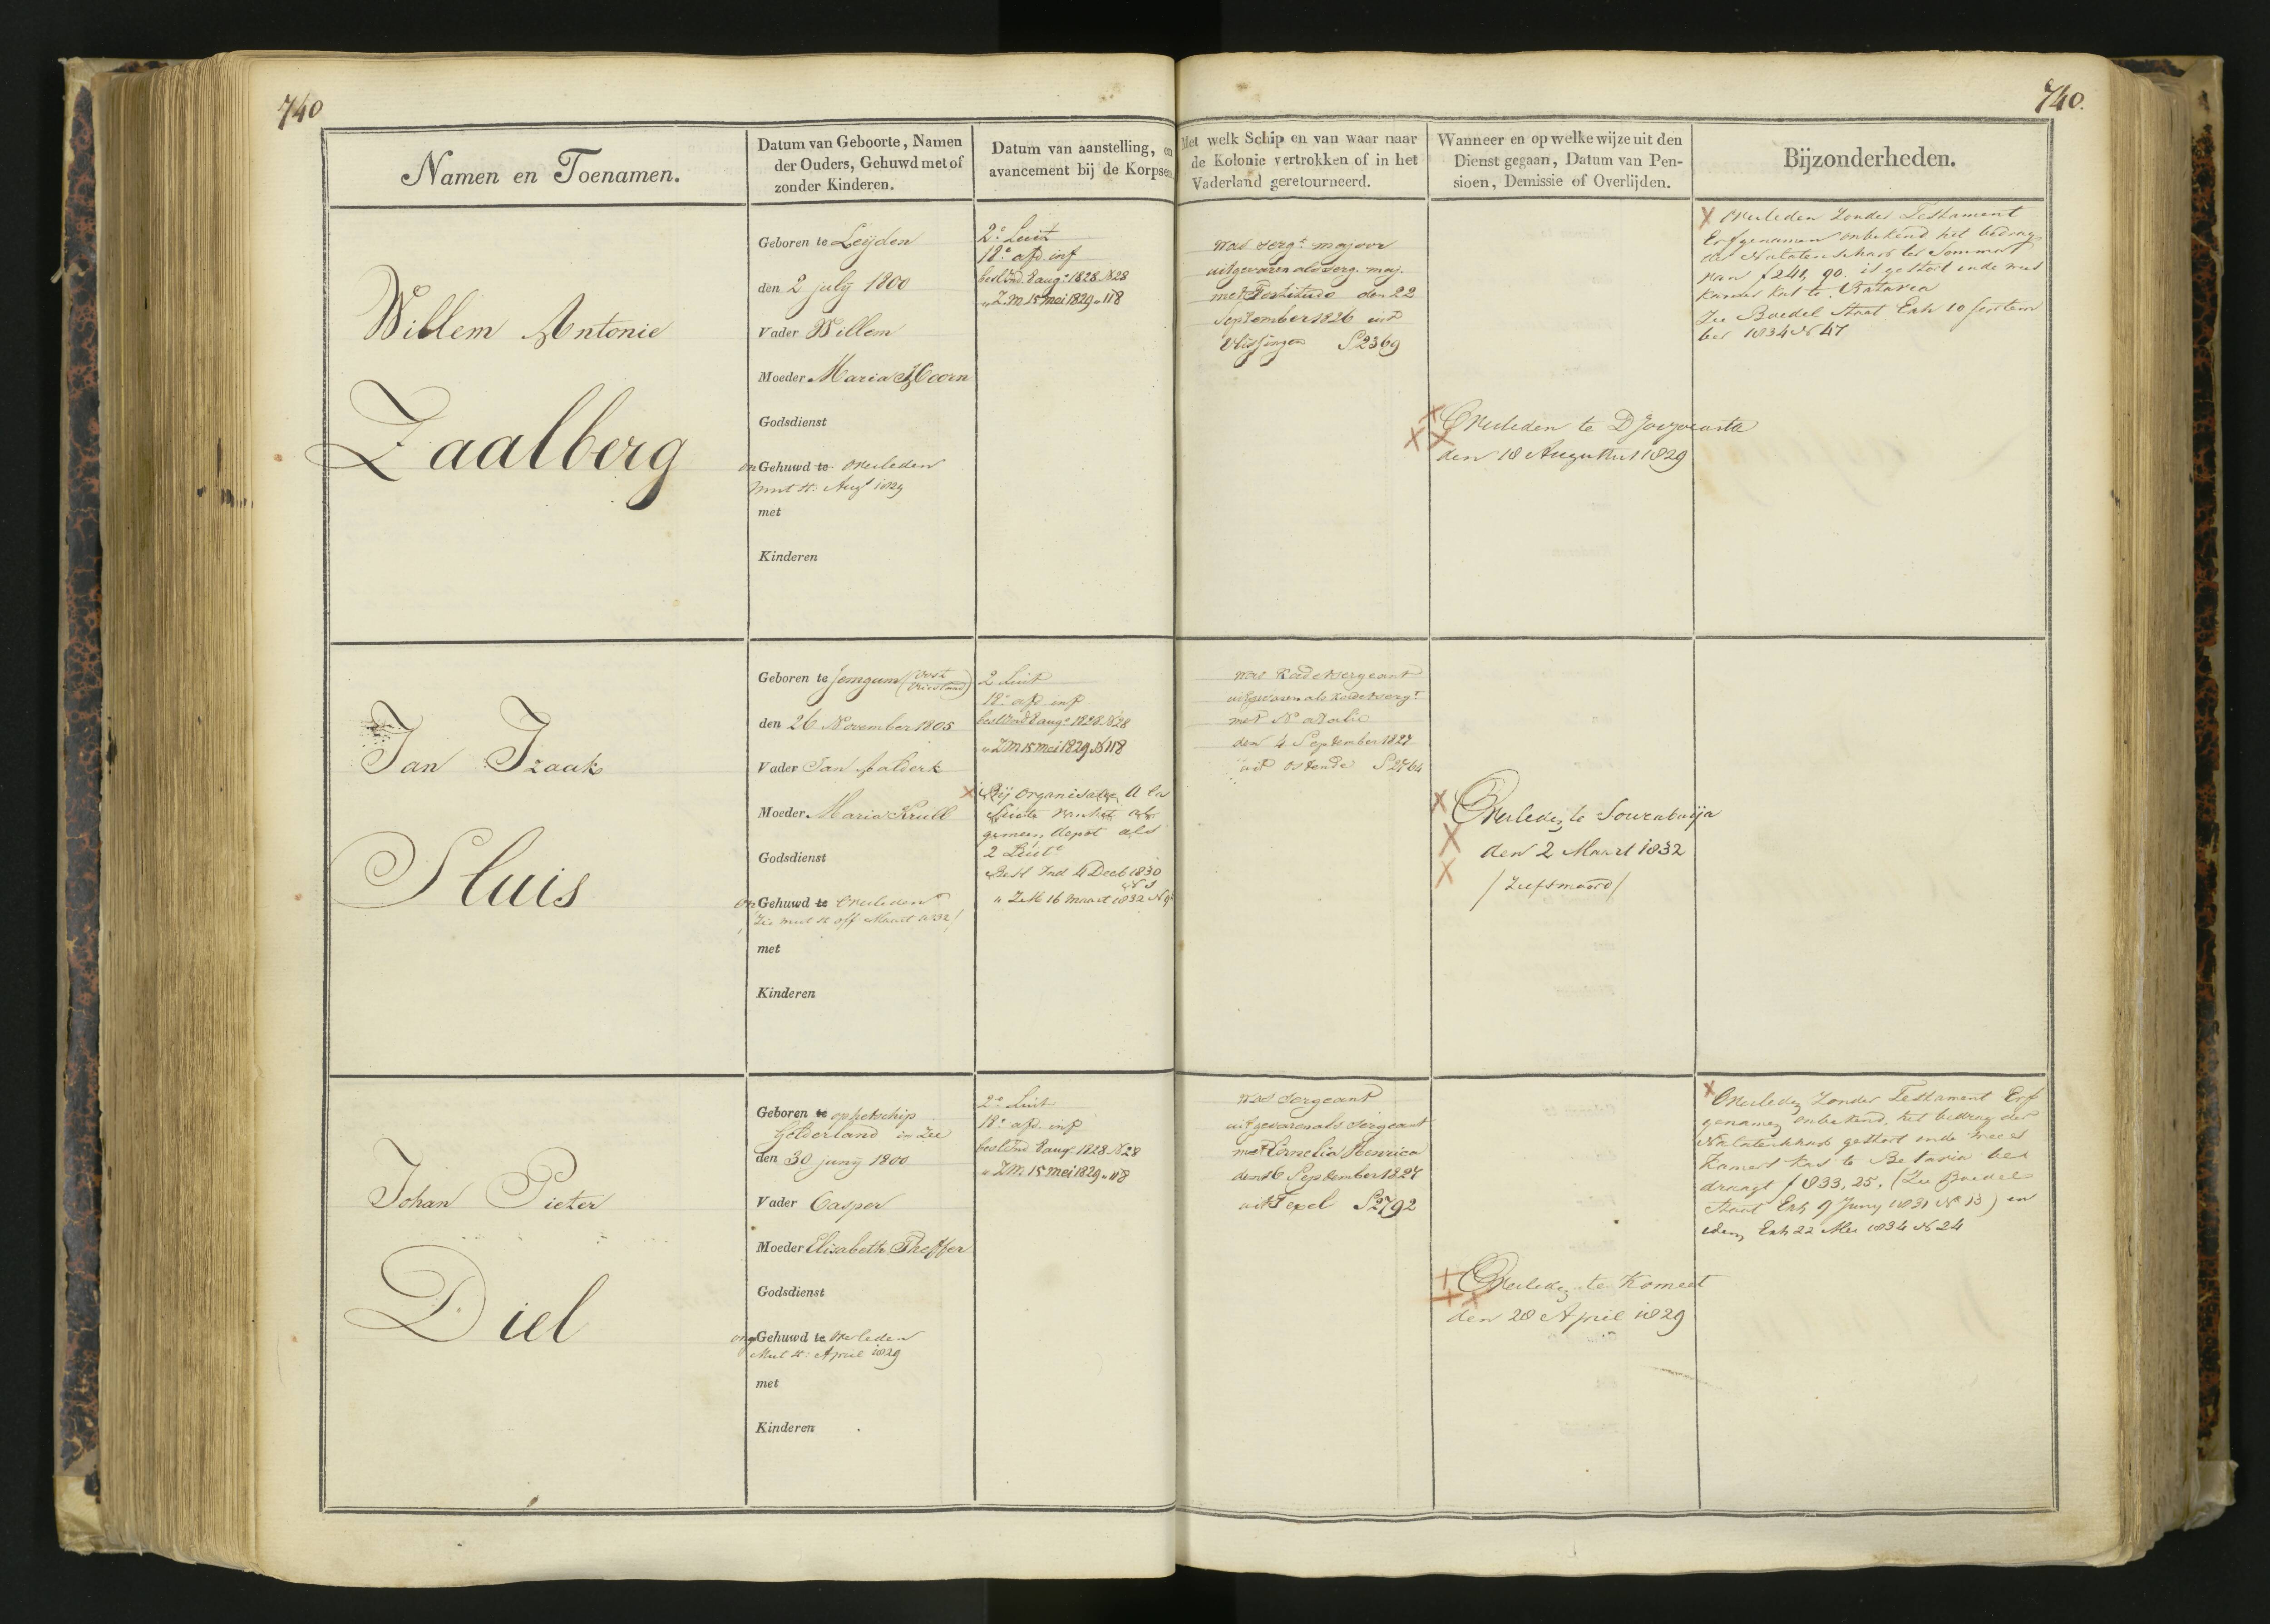 740
740.
Namen en Toenamen.
Datum van Geboorte, Namen
der Ouders, Gehuwd met of
zonder Kinderen.
Datum van aanstelling, en
avancement bij de Korpsen.
Met welk Schip en van waar naar
de Kolonie vertrokken of in het
Vaderland geretourneerd.
Wanneer en op welke wijze uit den
Dienst gegaan, Datum van Pen-
sioen, Demissie of Overlijden.
Bijzonderheden.
Willem Antonie
Zaalberg
Geboren te Leyden
den 2 july 1800
Vader Willem
Moeder Maria Hoorn
Godsdienst
on Gehuwd te overleden
mut st: Augt 1829
met
Kinderen
2e Luit
18e afd inf
besl Ind 8 augs 1828 N28
" Z.M 15 mei 1829 " 118
was sergt majoor
uitgevaren als serg. maj.
met Fortitudo den 22
September 1826 uit
Vlissingen S2369
Overleden te Djocjocarta
den 18 Augustus 1829
Overleden zonder Testament
Erfgenamen onbekend het bedrag
der Nalatenschap ter Somma
van f 241,90. is gestort in de wees
kamer kas te Batavia
Zie Boedel Staat Exh 10 septem
ber 1834 N 47
Jan Izaak
Sluis
Geboren te Jemgum (Oost
Vriesland)
den 26 November 1805
Vader Jan Aalderk
Moeder Maria Krull
Godsdienst
on Gehuwd te Overleden
/Zie mut st off Maart 1832/
met
Kinderen
2 Luit
18e afd inf
besl Ind 8 augs 1828 N28
" Z.M 15 mei 1829 N118
Bij organisatie a la
suite van het al
gemeen depot als
2 Luitt
Besl Ind 4 Decb 1830
N 1
" Z.M 16 maart 1832 N
was Kadetsergeant
uitgevaren als Kadetsergt
met Natalie
den 4 September 1827
uit Ostende S2764
Overleden te Sourabaija
den 2 Maart 1832
/Zelfmoord/
Johan Pieter
Diel
Geboren te op het schip
Gelderland in Zee
den 30 juny 1800
Vader Casper
Moeder Elisabeth Theffer
Godsdienst
ong Gehuwd te overleden
Mut st: April 1829
met
Kinderen
2e Luit
18e afd inf
besl Ind 8 augs 1828 N28
" Z.M 15 mei 1829 " 118
was Sergeant
uitgevaren als Sergeant
met Cornelia Henrica
den 16 September 1827
uit Texel S2792
Overleden te Komeet
den 28 April 1829
Overleden zonder Testament Erf
genamen onbekend, het bedrag der
Nalatenschap gestort in de wees
kamers kas te Batavia be
draagt f 833,25. (Zie Boedel
Staat Exh 9 Juny 1831 No 13) en
idem Exh 22 Mei 1834 N 24